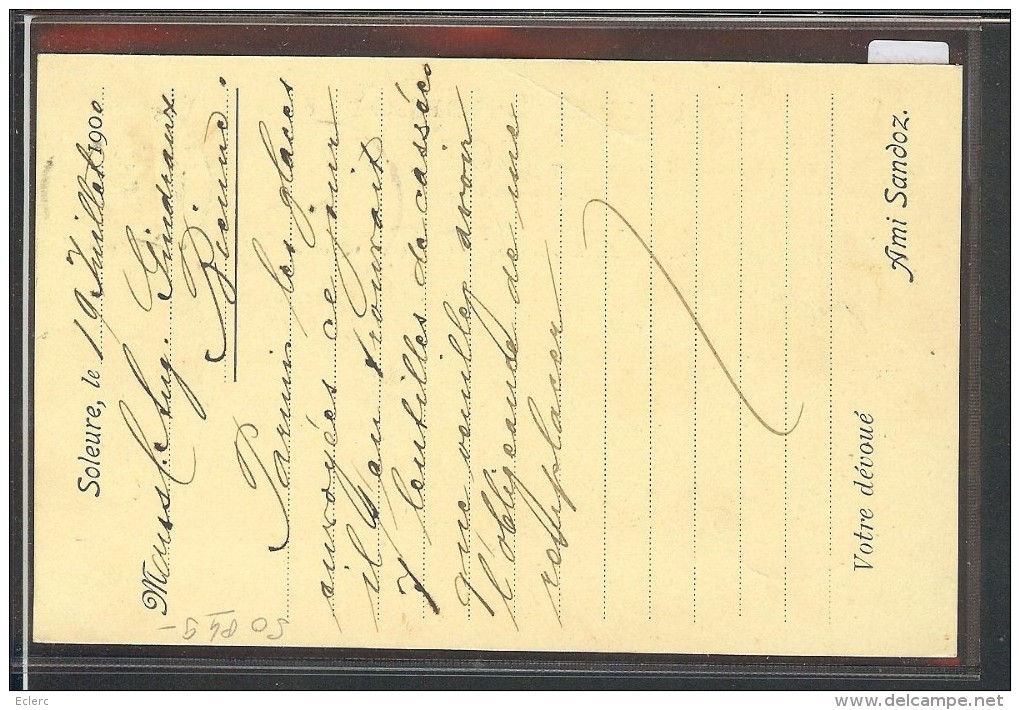 Soleure, le 19 Juillet 1900
Mons. Aug. Gindraux
Bienne.
Parmi les glaces
envoyées ce jour
il s'en trouvait
7 lentilles de cassées
que veuillez avoir
l'obligeance de me
remplacer
Votre dévoué
Ami Sandoz.
Eclerc
www.delcampe.net